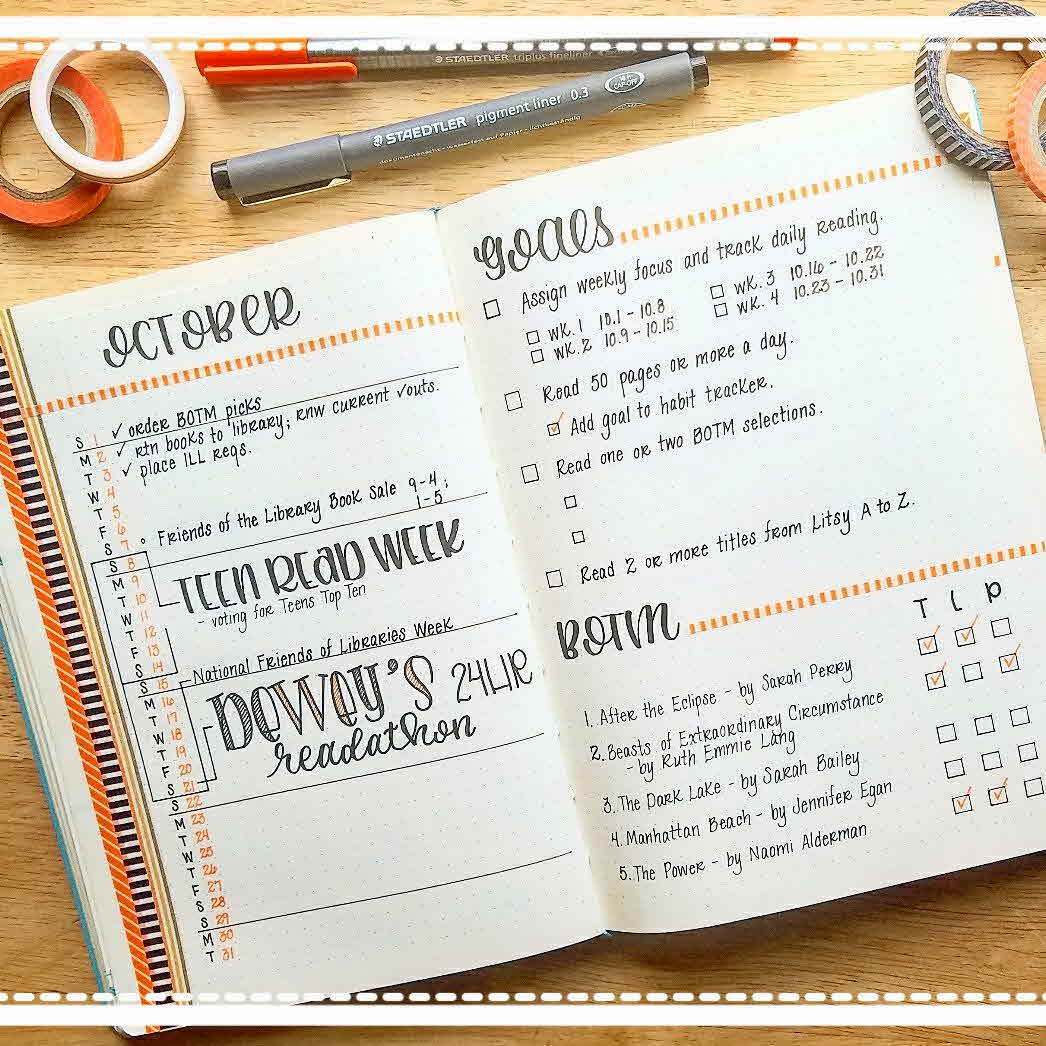 STAEDTLER triplus fineliner
STAEDTLER pigment liner 0.3
OCTOBER
S 1 ✓ order BOTM picks
M 2 ✓ rtn books to library; rnw current ✓outs.
T 3 ✓ place ILL reqs.
W 4
T 5
F 6
S 7 ° Friends of the Library Book Sale 9-4;
1-5
S 8
M 9
T 10
W 11
T 12
F 13
S 14
TEEN READ WEEK
- voting for Teens Top Ten
National Friends of Libraries Week
S 15
M 16
T 17
W 18
T 19
F 20
S 21
DEWEY'S 24HR
readathon
S 22
M 23
T 24
W 25
T 26
F 27
S 28
S 29
M 30
T 31
GOALS
Assign weekly focus and track daily reading.
WK. 1 10.1 - 10.8
WK. 2 10.9 - 10.15
WK. 3 10.16 - 10.22
WK. 4 10.23 - 10.31
Read 50 pages or more a day.
✓ Add goal to habit tracker.
Read one or two BOTM selections.
Read 2 or more titles from Litsy A to Z.
BOTM T L P
1. After the Eclipse - by Sarah Perry
2. Beasts of Extraordinary Circumstance
- by Ruth Emmie Lang
3. The Dark Lake - by Sarah Bailey
4. Manhattan Beach - by Jennifer Egan
5. The Power - by Naomi Alderman